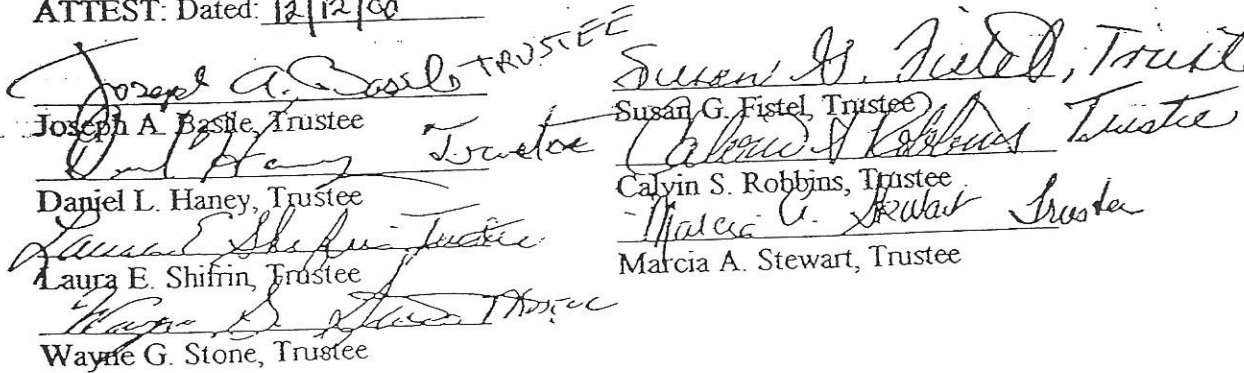 ATTEST: Dated: 12/12/00
Joseph A. Basile TRUSTEE
Joseph A. Basile, Trustee
Daniel L. Haney Trustee
Daniel L. Haney, Trustee
Laura E. Shifrin Trustee
Laura E. Shifrin, Trustee
Wayne G. Stone Trustee
Wayne G. Stone, Trustee
Susan G. Fistel, Trustee
Susan G. Fistel, Trustee
Calvin S. Robbins Trustee
Calvin S. Robbins, Trustee
Marcia A. Stewart Trustee
Marcia A. Stewart, Trustee